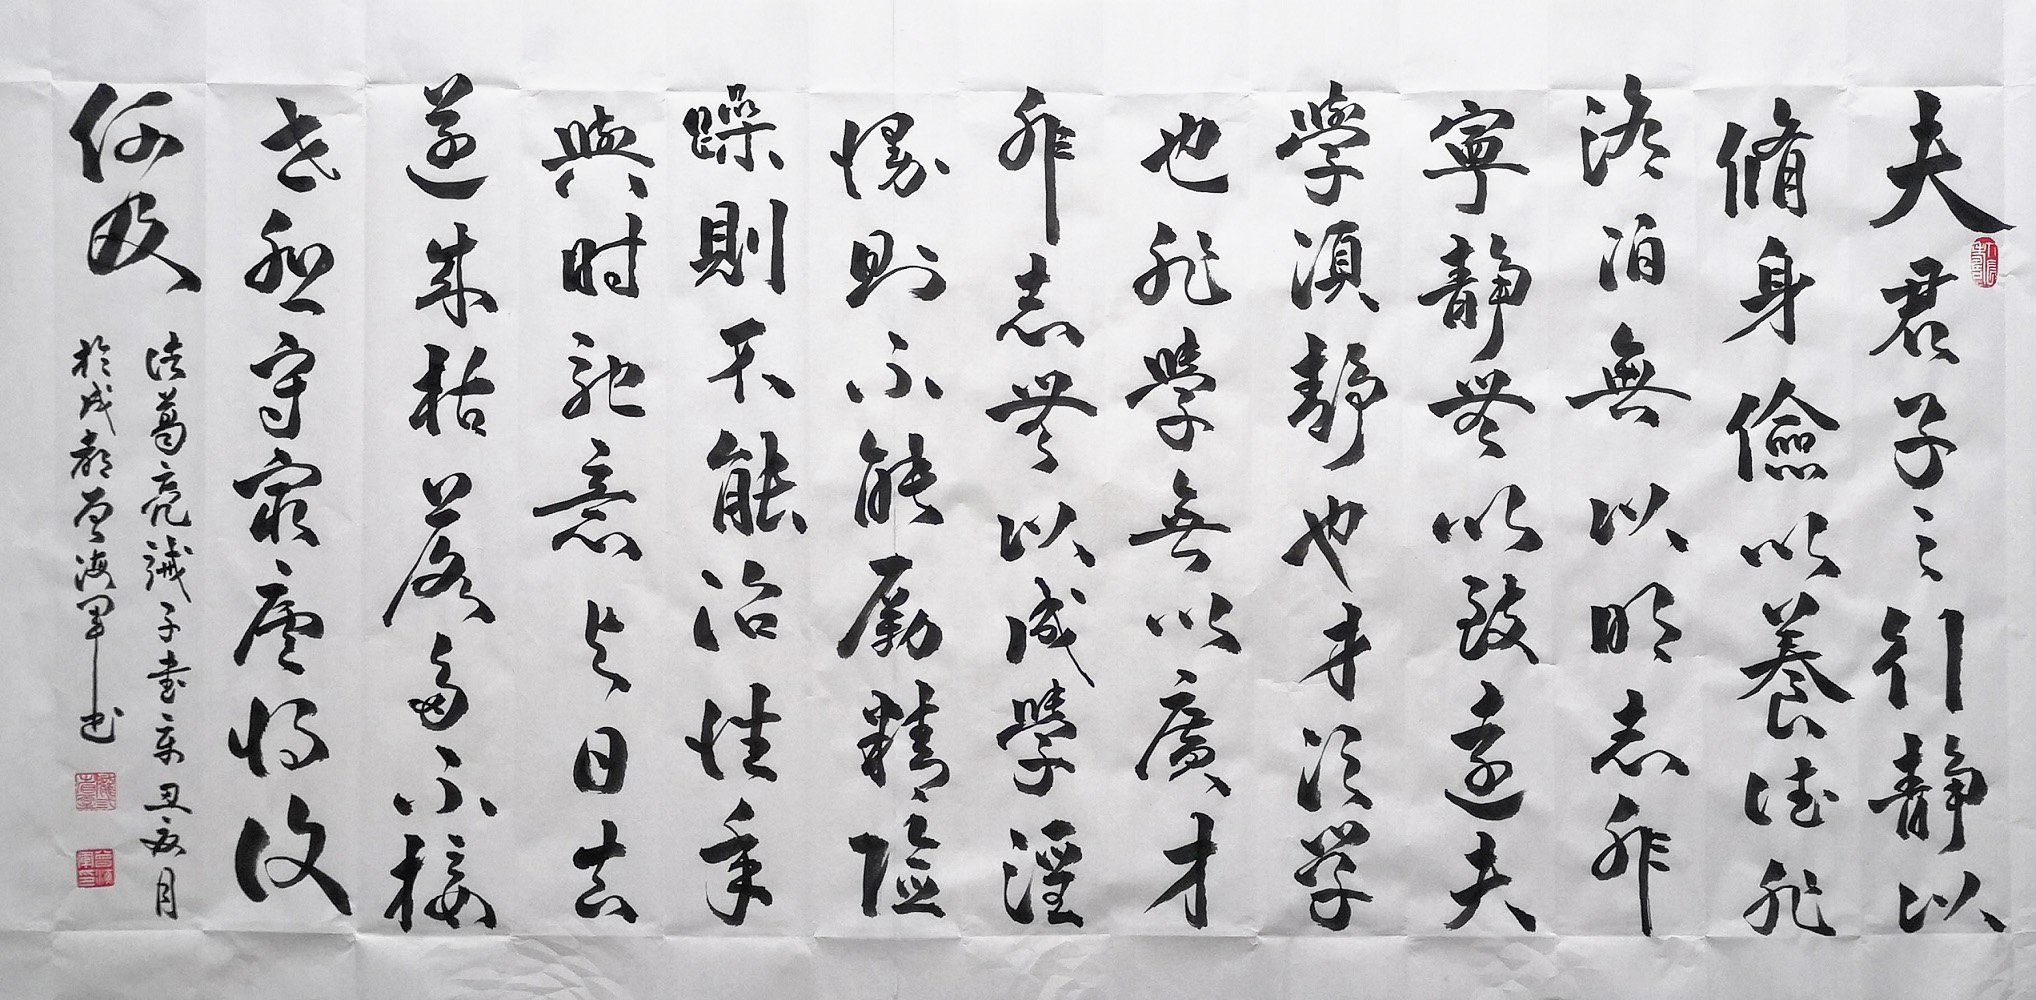 夫君子之行靜以
脩身儉以養德非
澹泊無以明志非
寧靜無以致遠夫
學須靜也才須學
也非學無以廣才
非志無以成學淫
慢則不能勵精險
躁則不能治性年
與時馳意與日去
遂成枯落多不接
世悲守窮廬將復
何及
諸葛亮誡子書辛丑夜月
於成都曾海軍書